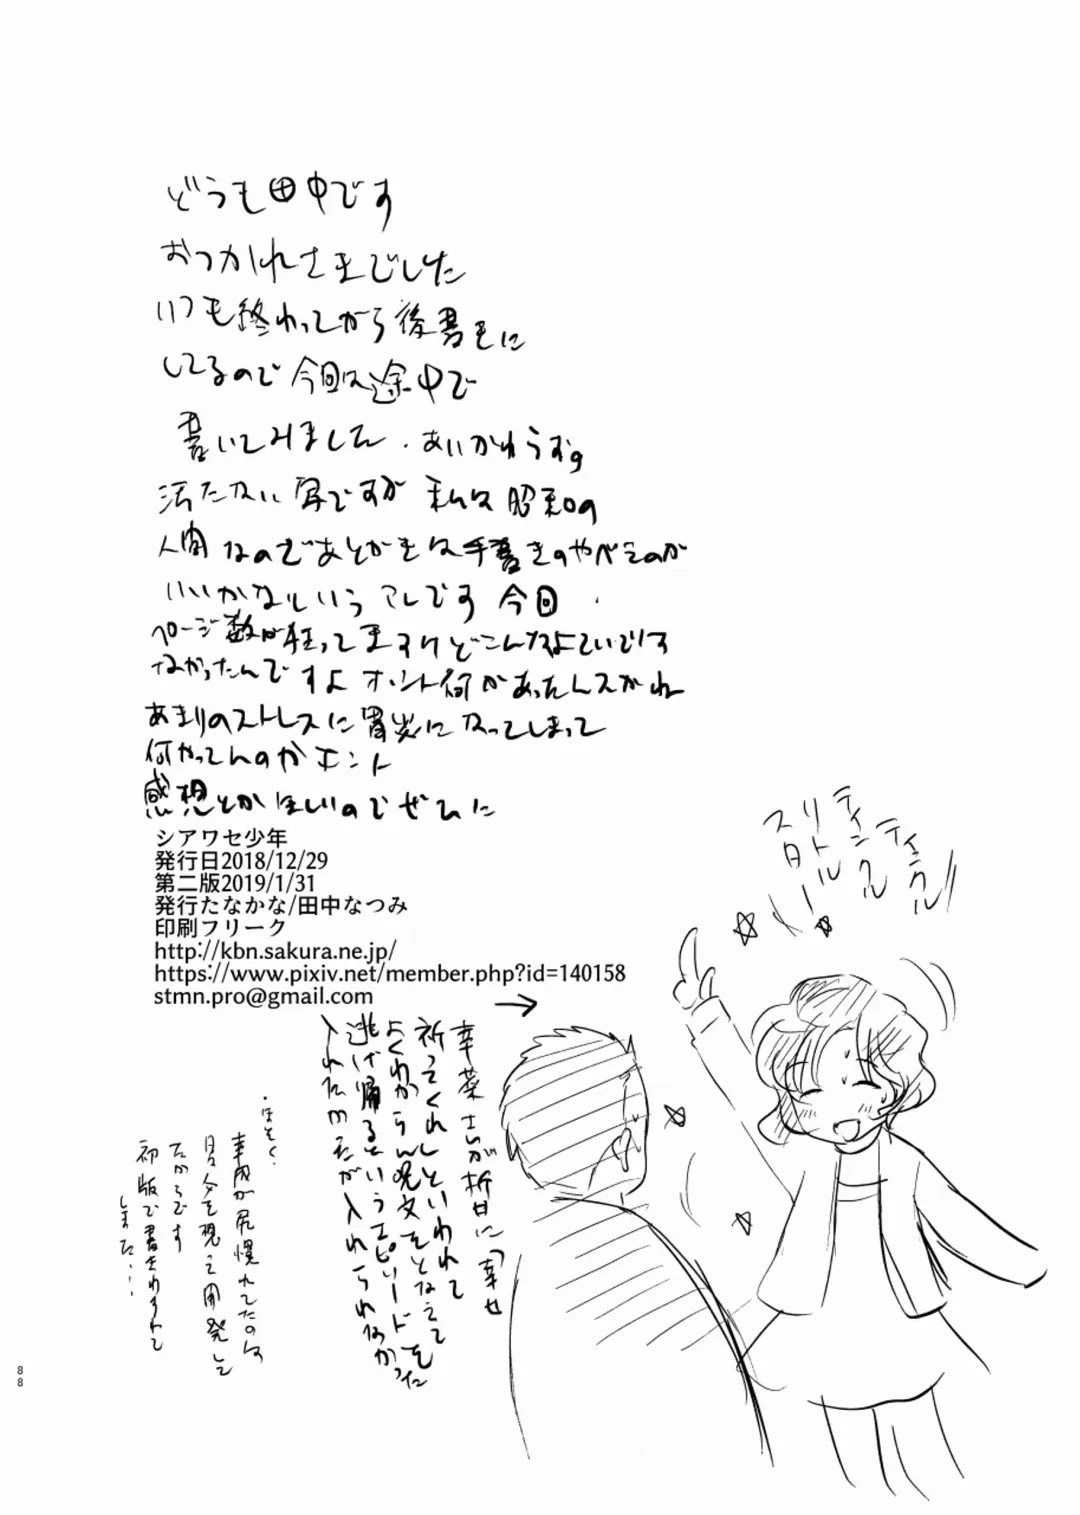 どうも田中です
おつかれさまでした
いつも終わってから後書きに
してるので今回は途中で
書いてみました.あいかわらずの
汚たない字ですが私は昭和の
人間なのであとがきは手書きのやべえのが
いいかなというアレです 今回
ページ数が狂ってますけどこんなよていでは
なかったんですよ ホント何があったんスかね
あまりのストレスに胃炎になってしまって
何やってんのかホント
感想とかほしいのでぜひに
シアワセ少年
発行日2018/12/29
第二版2019/1/31
発行たなかな/田中なつみ
印刷フリーク
http://kbn.sakura.ne.jp/
https://www.pixiv.net/member.php?id=140158
stmn.pro@gmail.com
→
ティンクルティンクル
リトル
スター
祈ってくれ」といわれて
よくわからん呪文をとなえて
逃げ帰るというエピソードを
入れたかったが入れられなかった
88